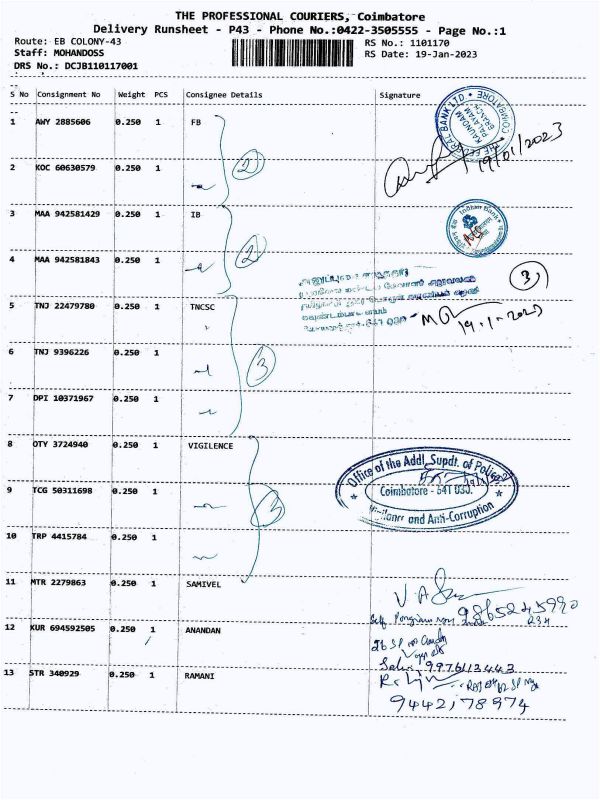 THE PROFESSIONAL COURIERS, Coimbatore
Delivery Runsheet - P43 - Phone No.:0422-3505555 - Page No.:1
Route: EB COLONY-43
Staff: MOHANDOSS
DRS No.: DCJB110117001
RS No.: 1101170
RS Date: 19-Jan-2023
S No Consignment No Weight PCS Consignee Details Signature
1 AWY 2885606 0.250 1 FB
2
THE FEDERAL BANK LTD. COIMBATORE
KAUNDAM PALAYAM BRANCH
19/01/2023
2 KOC 60630579 0.250 1
3 MAA 942581429 0.250 1 IB
2
Indian Bank
4 MAA 942581843 0.250 1
3
5 TNJ 22479780 0.250 1 TNCSC
19-1-2023
6 TNJ 9396226 0.250 1
3
7 DPI 10371967 0.250 1
8 OTY 3724940 0.250 1 VIGILENCE
Office of the Addl. Supdt. of Police
Coimbatore - 641 030.
Vigilance and Anti-Corruption
9 TCG 50311698 0.250 1
3
10 TRP 4415784 0.250 1
11 MTR 2279863 0.250 1 SAMIVEL
9865245990
12 KUR 694592505 0.250 1 ANANDAN
9976113443
13 STR 340929 0.250 1 RAMANI
9442178974